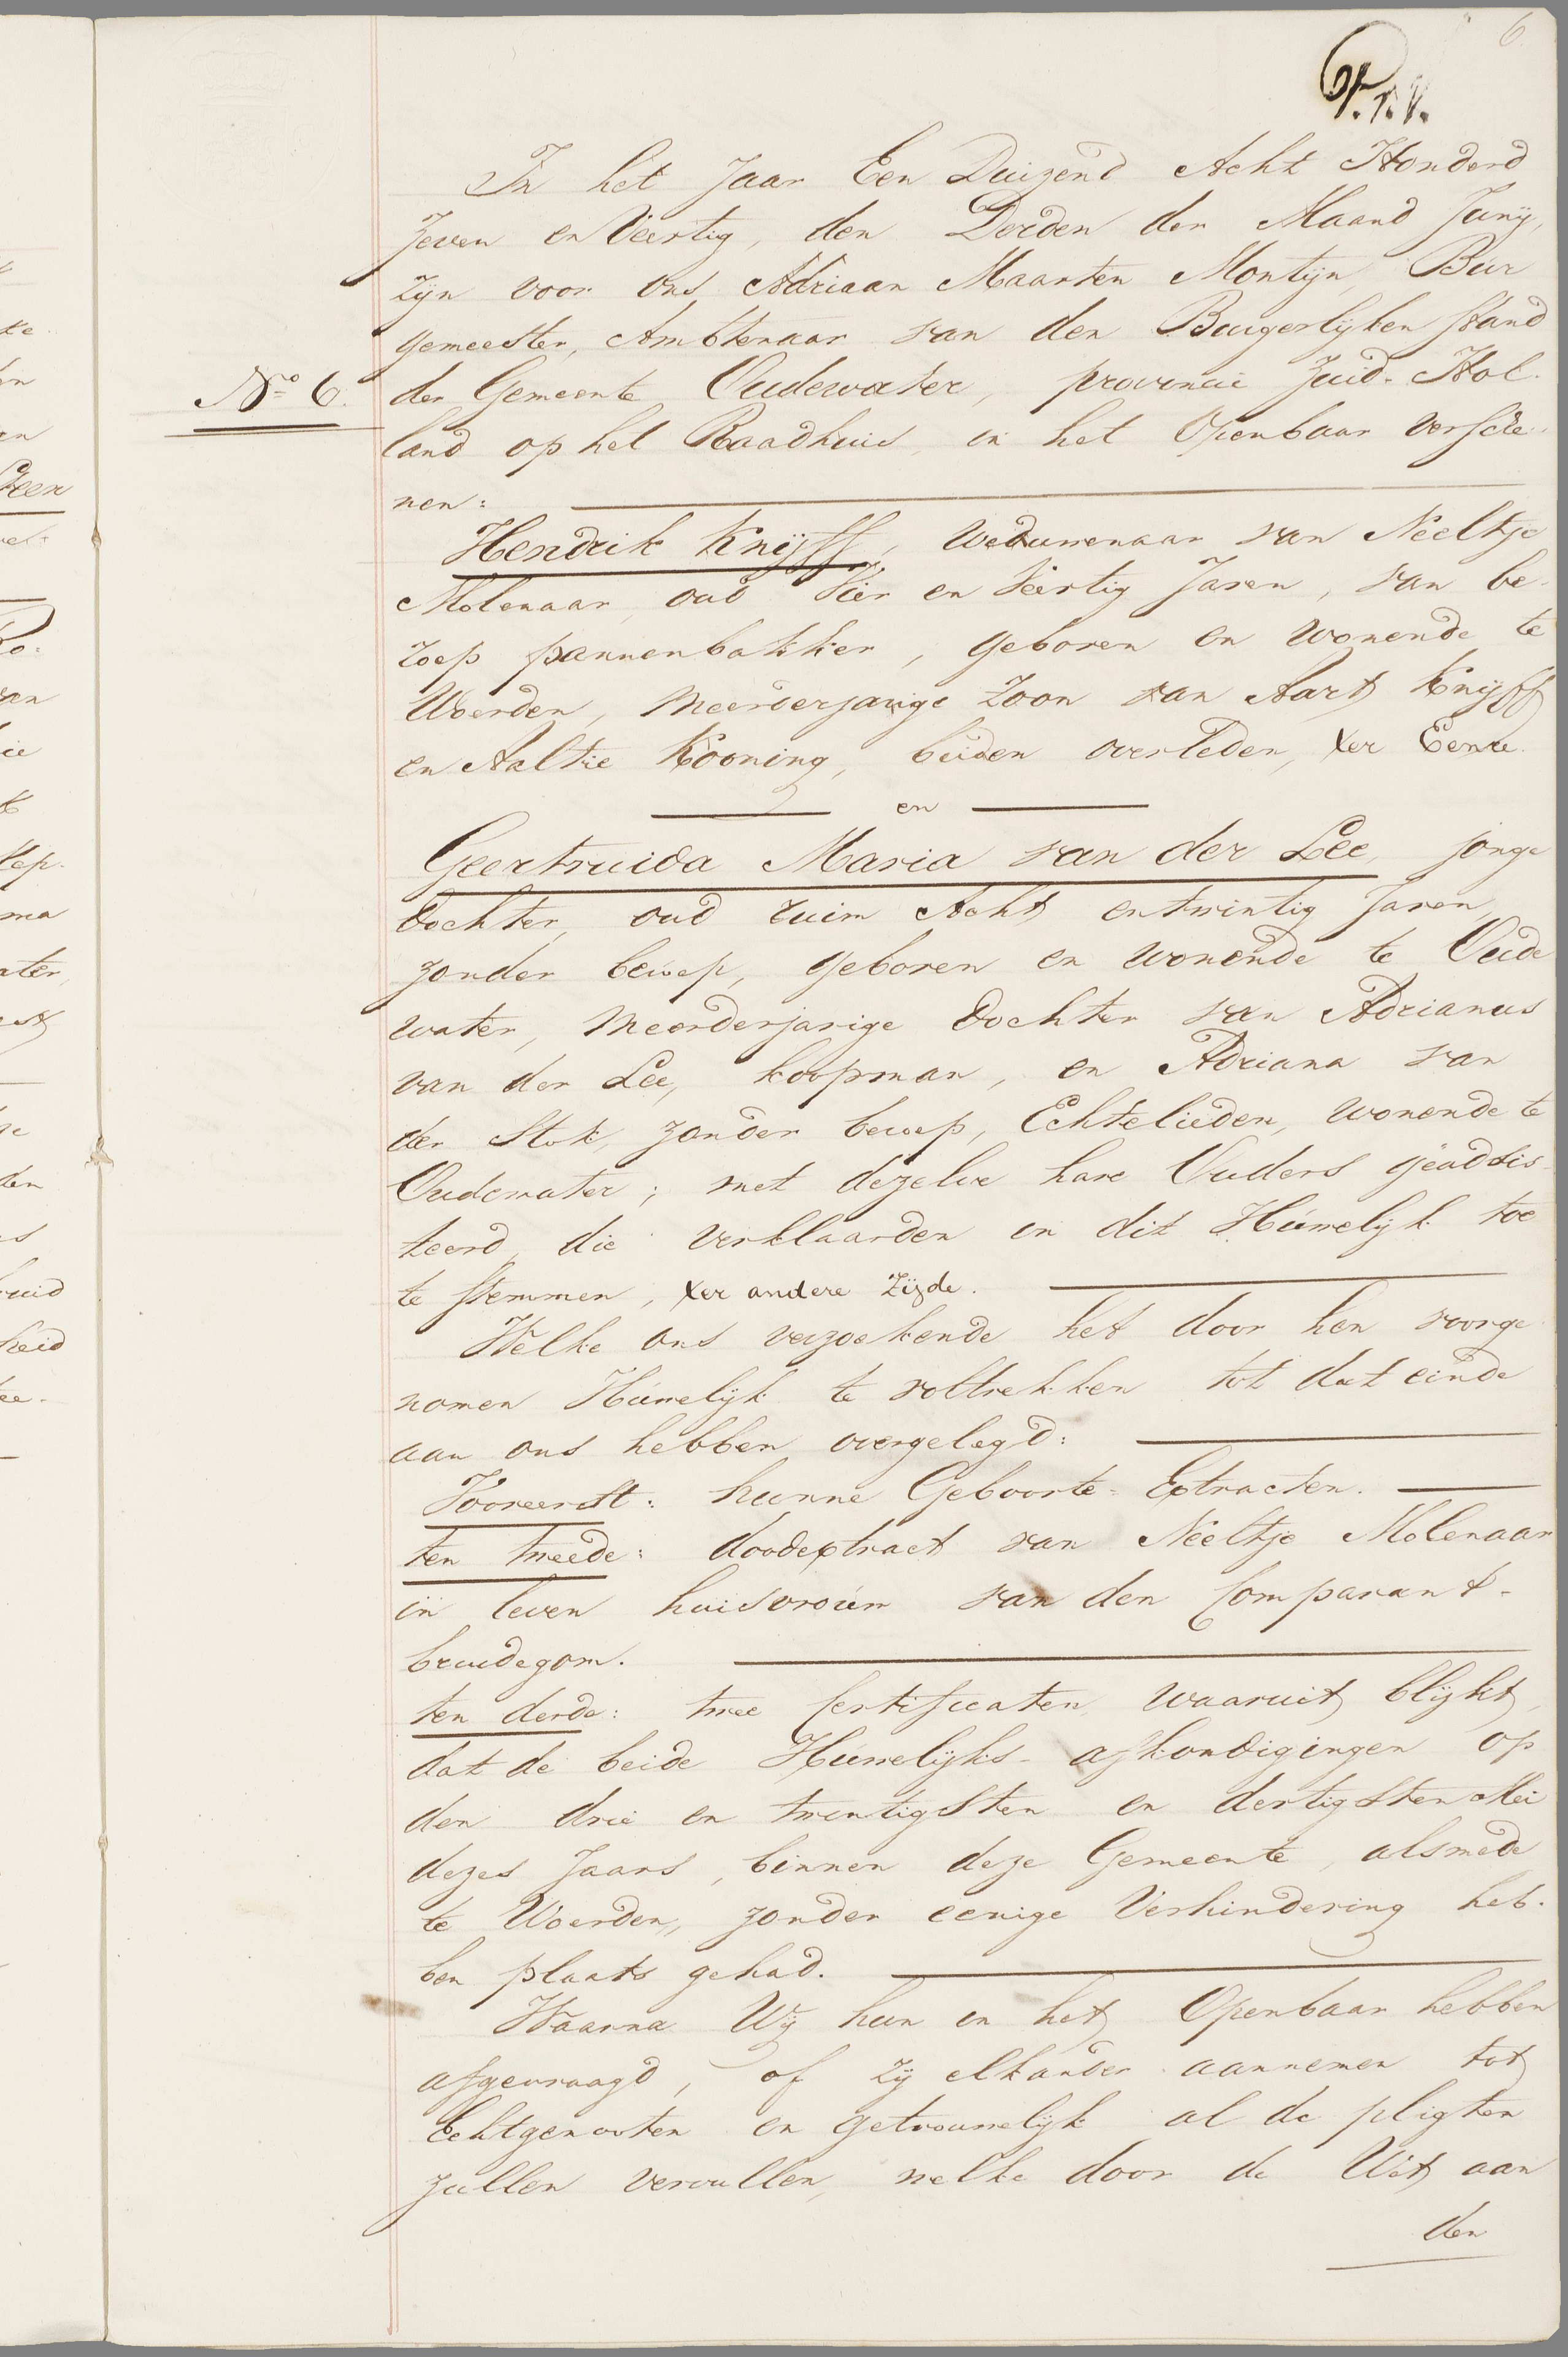 6
In het Jaar Een Duizend Acht Honderd
Zeven en Veertig, den Derden der Maand Junij,
zijn voor ons Adriaan Maarten Montijn, Bur
gemeester, Ambtenaar van den Burgerlijken Stand
No 6.
der Gemeente Oudewater, provincie Zuid-Hol-
land op het Raadhuis, in het Openbaar versche-
nen:
Hendrik Knijff, Weduwenaar van Neeltje
Molenaar, oud Vier en Veertig Jaren, van be-
roep pannenbakker, geboren en wonende te
Woerden, Meerderjarige Zoon van Aart Knijff
en Aaltie Kooning, beiden overleden, ter Eenre
en
Geertruida Maria van der Lee, jonge
dochter, oud ruim Acht en twintig Jaren,
zonder beroep, geboren en wonende te Oude
water, Meerderjarige dochter van Adrianus
van der Lee, koopman, en Adriana van
der Stok, zonder beroep, Echtelieden, wonende te
Oudewater; met dezelve hare Ouders geadsis-
teerd, die verklaarden in dit Huwelijk toe
te stemmen, ter andere Zijde.
Welke ons verzoekende het door hen voorge
nomen Huwelijk te voltrekken tot dat einde
aan ons hebben overgelegd:
Vooreerst: hunne Geboorte-Extracten.
ten tweede: doodextract van Neeltje Molenaar
in leven huisvrouw van den Comparant-
bruidegom.
ten derde: twee Certificaten, waaruit blijkt,
dat de beide Huwelijks-afkondigingen op
den drie en twintigsten en dertigsten Mei
dezes Jaars, binnen deze Gemeente, alsmede
te Woerden, zonder eenige Verhindering heb-
ben plaats gehad.
Waarna Wij hun in het Openbaar hebben
afgevraagd, of zij elkander aannemen tot
Echtgenooten en getrouwelijk al de pligten
zullen vervullen, welke door de Wet aan
den